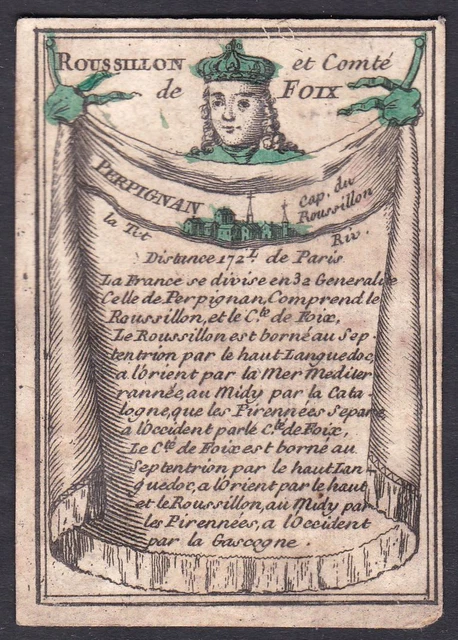 ROUSSILLON et Comté
de FOIX
PERPIGNAN Cap. du
Roussillon
la Tet Riv.
Distance 172 l. de Paris
La France se divise en 32 Generalite
Celle de Perpignan, Comprend le
Roussillon, et le C.té de Foix,
Le Roussillon est borné au Sep-
tentrion par le haut Languedoc,
a l'orient par la Mer Mediter
rannée, au Midy par la Cata-
logne, que les Pirennées Separe
a l'Occident par le C.té de Foix,
Le C.té de Foix est borné au
Septentrion par le haut Lan
guedoc, a l'Orient par le haut
et le Roussillon, au Midy par
les Pirennées, a l'Occident
par la Gascogne.